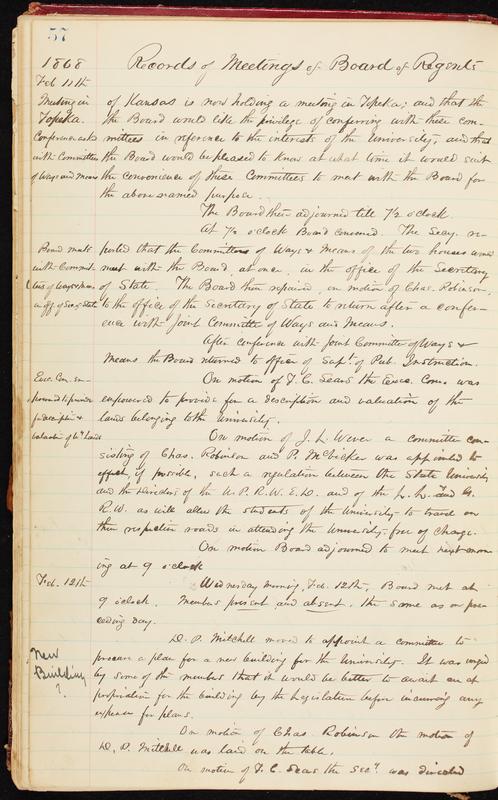 57
1868 Records of Meetings of Board of Regents
Feb 11th
Meeting in of Kansas is now holding a meeting in Topeka; and that the
Topeka. the Board would like the privilege of conferring with these com-
Conference asks mittees in reference to the interests of the University, and that
with Committee the Board would be pleased to know at what time it would suit
of Ways and means the convenience of these Committees to meet with the Board for
the above named purpose.
The Board then adjourned till 7½ o'clock.
At 7½ o'clock Board convened. The Secy. re-
Board meets ported that the Committees of Ways & Means of the two houses would
with Commit- meet with the Board, at once, in the office of the Secretary
tees of Ways & Means of State. The Board then repaired, on motion of Chas. Robinson,
in off. of Sec. of State to the office of the Secretary of State to return after a confer-
ence with Joint Committee of Ways and Means.
After conference with Joint Committee of Ways &
Means the Board returned to office of Supt. of Pub. Instruction.
Exec. Com. em- On motion of T. C. Sears the Exec. Com. was
powered to provide empowered to provide for a description and valuation of the
for descriptn & lands belonging to the University.
valuatn of Un. lands On motion of J. L. Wever a committee con-
sisting of Chas. Robinson and P. McVicker was appointed to
effect, if possible, such a regulation between the State University
and the directors of the U. P. R. W. E. D. and of the L. L. and G.
R. W. as will allow the students of the University to travel on
their respective roads in attending the University free of charge.
On motion Board adjourned to meet next morn-
ing at 9 o'clock
Feb. 12th Wednesday morning, Feb. 12th, Board met at
9 o'clock. Members present and absent, the same as on pre-
ceding day.
D. P. Mitchell moved to appoint a committee to
New procure a plan for a new building for the University. It was urged
Building by some of the members that it would be better to await an ap-
? propriation for the building by the Legislature before incurring any
expense for plans.
On motion of Chas. Robinson the motion of
D. P. Mitchell was laid on the table.
On motion of T. C. Sears the Secy. was directed